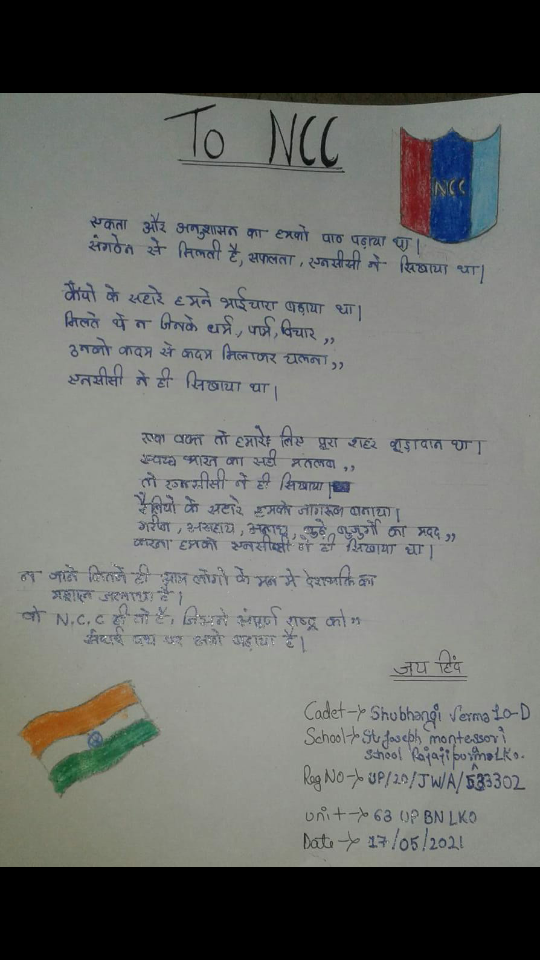 To NCC
NCC
एकता और अनुशासन का हमको पाठ पढ़ाया था|
संगठन से मिलती है, सफलता, एनसीसी ने सिखाया था|
कैंपो के सहारे हमने भाईचारा बढ़ाया था|
मिलते थे न जिनके धर्म, धर्म, विचार ,,
उनको कदम से कदम मिलाकर चलना,,
एनसीसी ने ही सिखाया था|
एक वक्त तो हमारे लिए पूरा शहर कूड़ादान था|
स्वच्छ भारत का सही मतलब ,,
तो एनसीसी ने ही सिखाया|
रैलियों के सहारे हमको जागरूक बनाया|
गरीब, असहाय, अनाथ, बुजुर्गो का मदद ,,
करना हमको एनसीसी ने ही सिखाया था|
न जाने कितने ही आम लोगो के मन मे देशभक्ति का
मशाल जलाया है|
वो N.C.C ही तो है, जिसने संपूर्ण राष्ट्र को
पथ पर है|
जय हिंद
Cadet → Shubhangi Verma 10-D
School → St Joseph montessori
school Rajajipuram LKo.
Reg No → UP/20/JWA/533302
unit → 63 UP BN LKO
Date → 17/05/2021